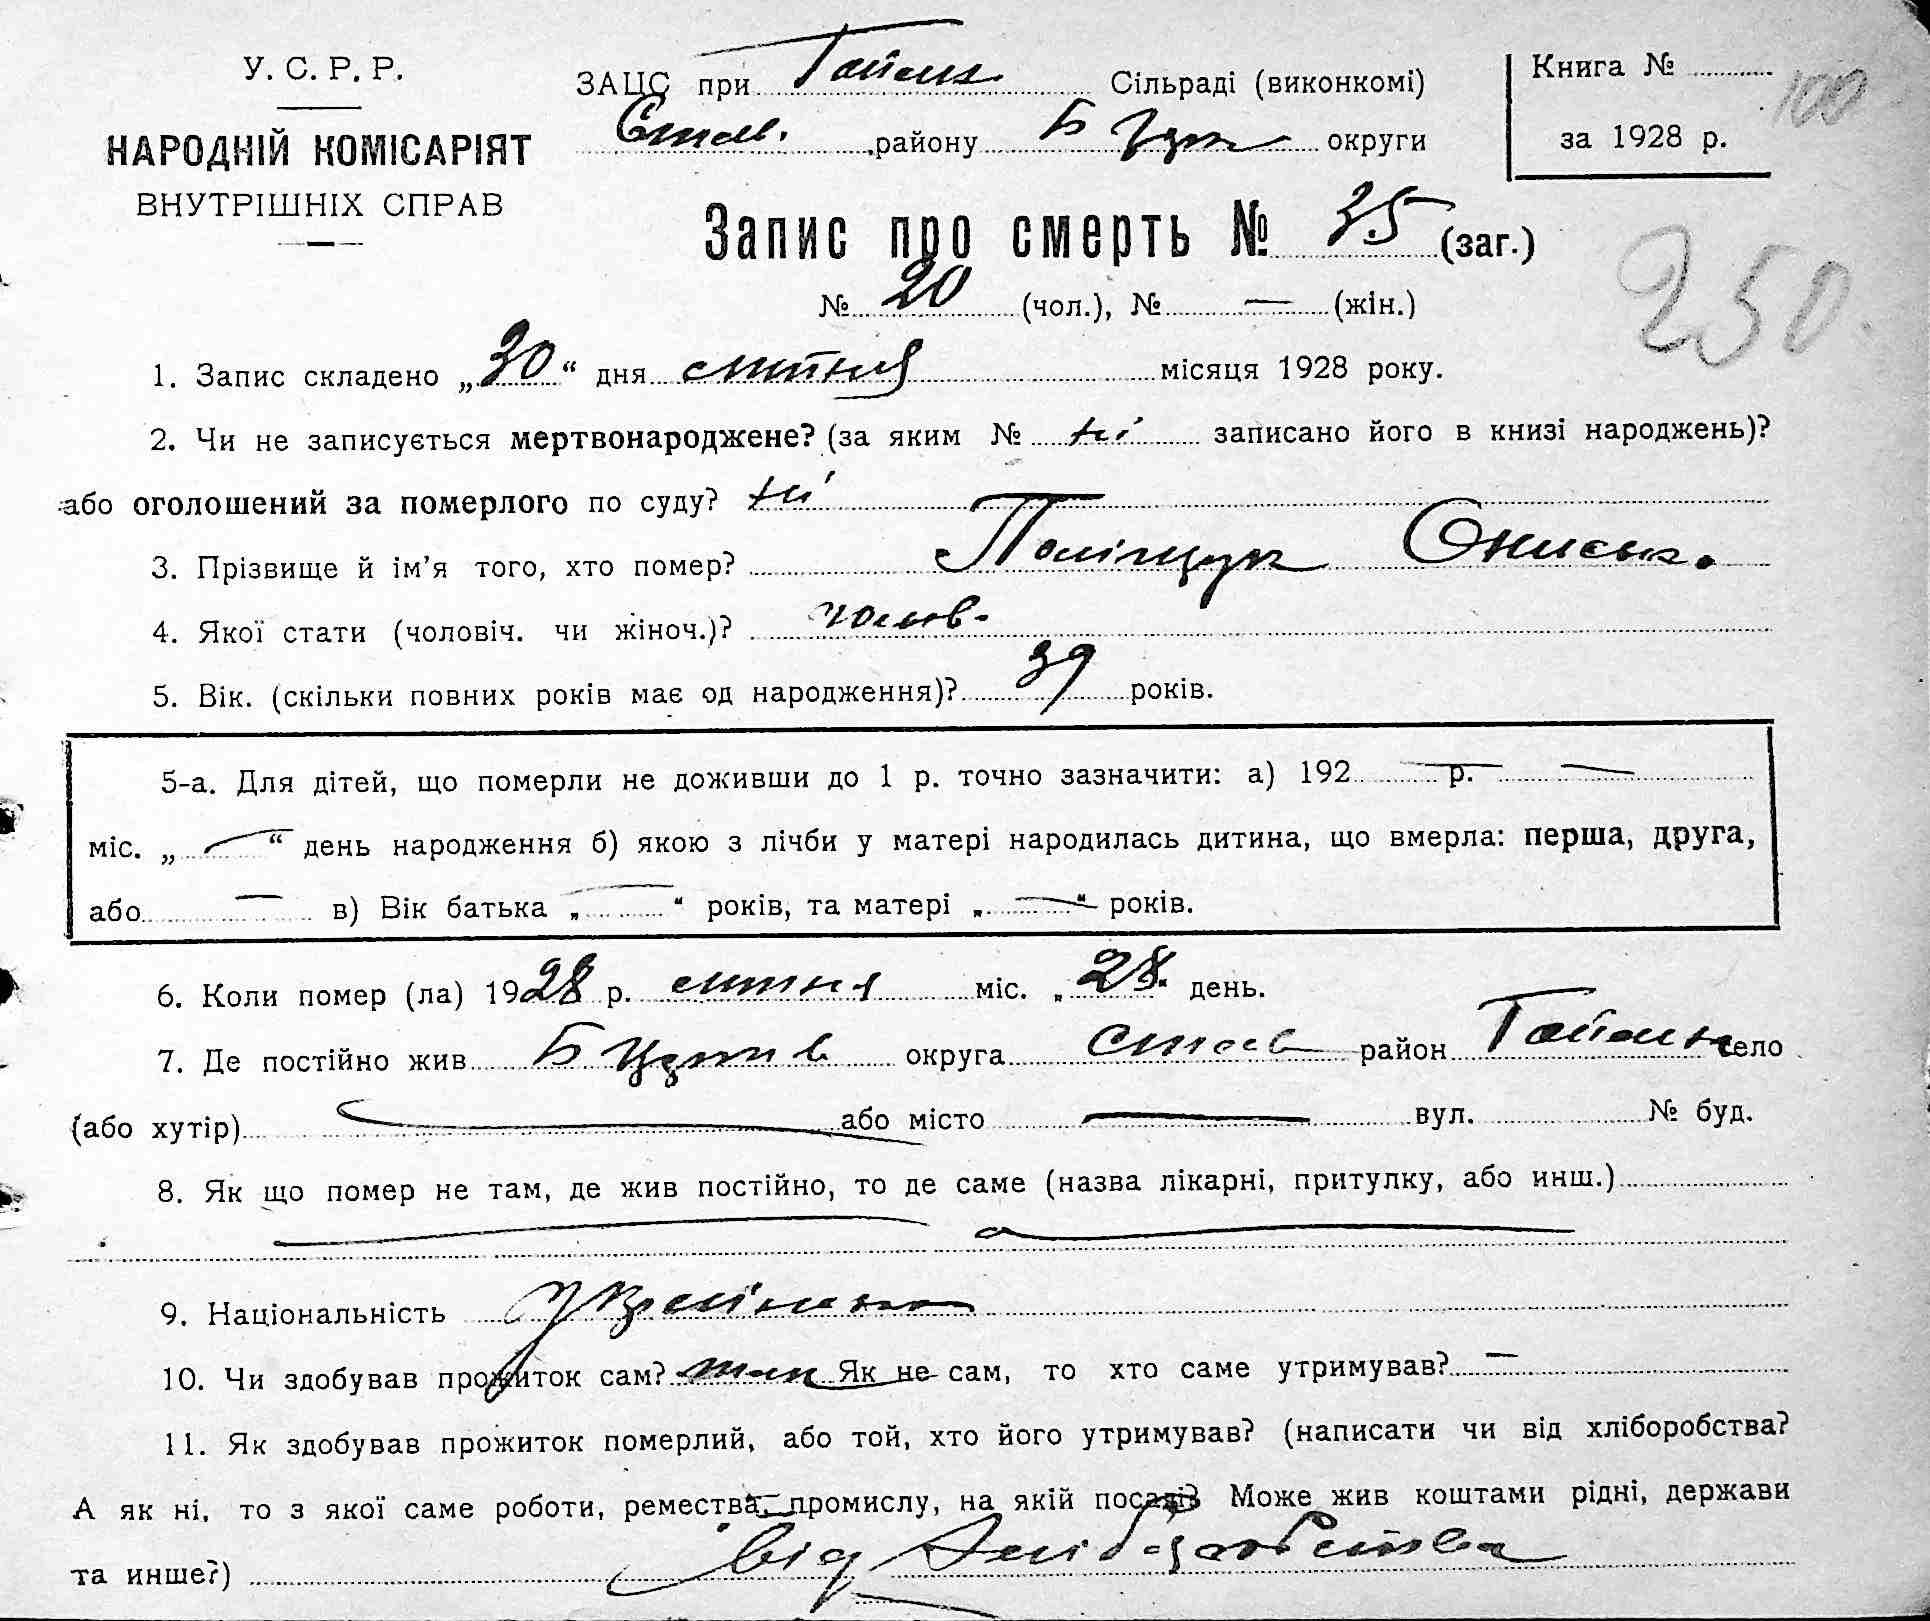 У. С. Р. Р.
НАРОДНІЙ КОМІСАРІЯТ
ВНУТРІШНІХ СПРАВ
ЗАЦС при Гайсин. Сільраді (виконкомі)
району Б Церк округи
Книга №
за 1928 р.
100
Запис про смерть № 35 (заг.)
250.
№ 20 (чол.), № — (жін.)
1. Запис складено „30“ дня квітня місяця 1928 року.
2. Чи не записується мертвонароджене? (за яким № ні записано його в книзі народжень)?
або оголошений за померлого по суду? ні
3. Прізвище й ім’я того, хто помер? Поліщук Онисько.
4. Якої стати (чоловіч. чи жіноч.)? чолов.
5. Вік. (скільки повних років має од народження)? 39 років.
5-а. Для дітей, що померли не доживши до 1 р. точно зазначити: а) 192 — р. —
міс. „ — “ день народження б) якою з лічби у матері народилась дитина, що вмерла: перша, друга,
або — в) Вік батька „ — “ років, та матері „ — “ років.
6. Коли помер (ла) 1928 р. міс. „28“ день.
7. Де постійно жив Б Церків округа район село
(або хутір) — або місто — вул. № буд.
8. Як що помер не там, де жив постійно, то де саме (назва лікарні, притулку, або инш.)
9. Національність українець
10. Чи здобував прожиток сам? так Як не сам, то хто саме утримував? —
11. Як здобував прожиток померлий, або той, хто його утримував? (написати чи від хліборобства?
А як ні, то з якої саме роботи, ремества, промислу, на якій посаді? Може жив коштами рідні, держави
та инше?) від хліборобства